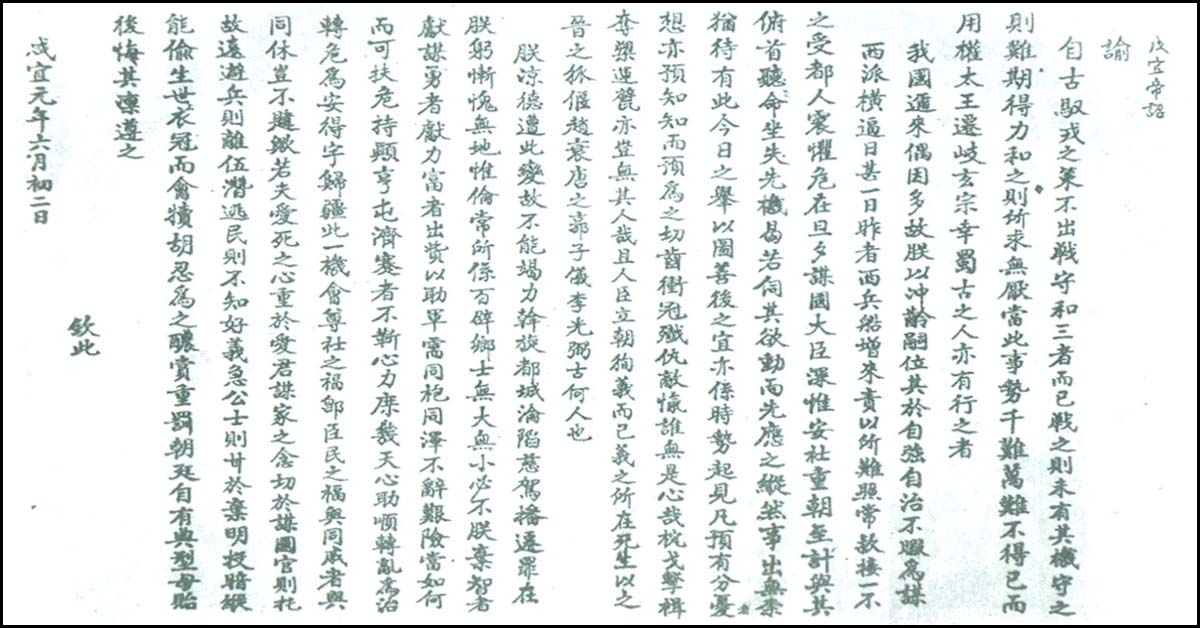 咸宜帝詔
諭
自古馭戎之策不出戰守和三者而已戰之則未有其機守之
則難期得力和之則所求無厭當此事勢千難萬難不得已而
用權太王遷岐玄宗幸蜀古之人亦有行之者
我國邇來偶因多故朕以冲齡嗣位其於自強自治不暇為謀
西派橫逼日甚一日昨者西兵船增來責以所難照常款接一不
之受都人震懼危在旦夕謀國大臣深惟安社重朝至計與其
俯首聽命坐失先機曷若伺其欲動而先應之縱然事出無柰
猶待有此今日之舉以圖善後之宜亦係時勢起見凡預有分憂
想亦預知知而預爲之切齒衝冠殲仇敵愾誰無是心哉枕戈擊楫
奪槊運甓亦豈無其人哉且人臣立朝狥義而已義之所在死生以之
晉之狐偃趙衰唐之郭子儀李光弼古何人也
朕涼德遭此變故不能竭力斡旋都城淪陷慈駕播遷罪在
朕躬慚愧無地惟倫常所係百辟鄉士無大無小必不朕棄智者
獻謀勇者獻力富者出貲以助軍需同袍同澤不辭艱險當如何
而可扶危持顛亨屯濟蹇者不靳心力庶幾天心助順轉亂爲治
轉危爲安得字歸疆此一機會尊社之福卽臣民之福與同戚者與
同休豈不韙歟若夫愛死之心重於愛君謀家之念切於謀國官則托
故遠避兵則離伍潛逃民則不知好義急公士則甘於棄明投暗縱
能偷生世衣冠而禽犢胡忍爲之醲賞重罰朝廷自有典型毋貽
後悔其凜遵之
欽此
咸宜元年六月初二日